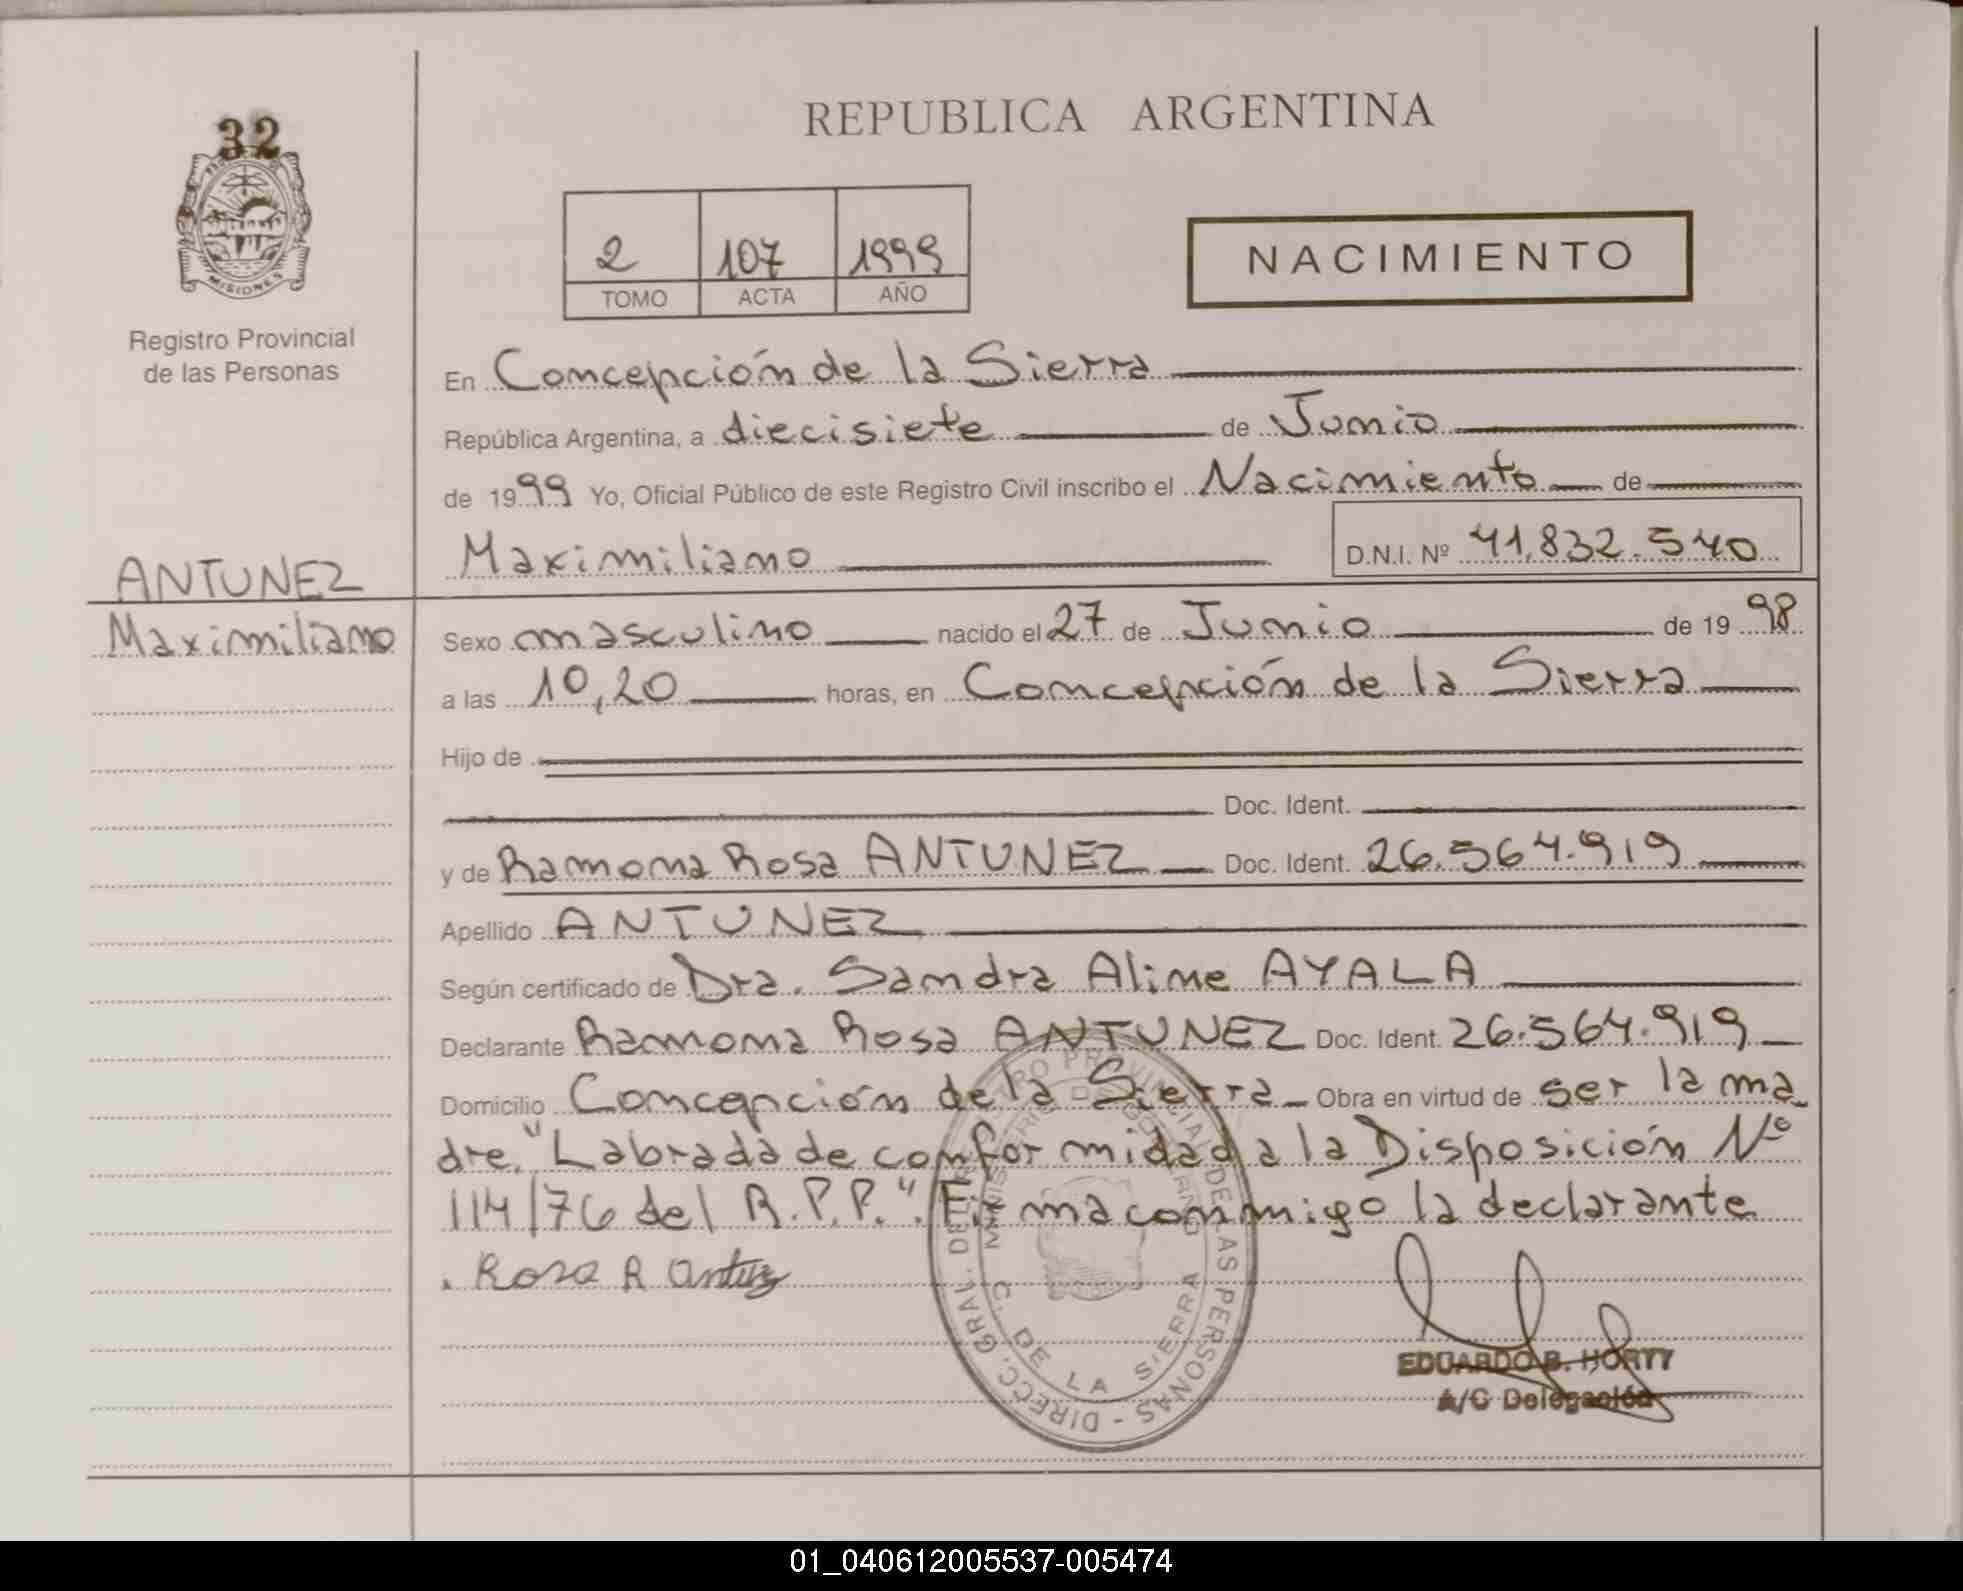 32
MISIONES
Registro Provincial
de las Personas
REPUBLICA ARGENTINA
2 107 1999
TOMO ACTA AÑO
NACIMIENTO
En Concepción de la Sierra
República Argentina, a diecisiete de Junio
de 1999 Yo, Oficial Público de este Registro Civil inscribo el Nacimiento de
Maximiliano D.N.I. Nº 41.832.540
ANTUNEZ
Maximiliano
Sexo masculino nacido el 27 de Junio de 19 98
a las 10,20 horas, en Concepción de la Sierra
Hijo de
Doc. Ident.
y de Ramona Rosa ANTUNEZ Doc. Ident. 26.564.919
Apellido ANTUNEZ
Según certificado de Dra. Sandra Aline AYALA
Declarante Ramona Rosa ANTUNEZ Doc. Ident. 26.564.919
Domicilio Concepción de la Sierra Obra en virtud de ser la ma
dre. "Labrada de conformidad a la Disposición Nº
114/76 del R.P.P.". Firma conmigo la declarante
Rosa R Antunez
DIRECC. GRAL. DEL REGISTRO PROVINCIAL DE LAS PERSONAS -
MINISTERIO DE GOBIERNO
C. DE LA SIERRA
EDUARDO B. HORTT
A/C Delegación
01_040612005537-005474